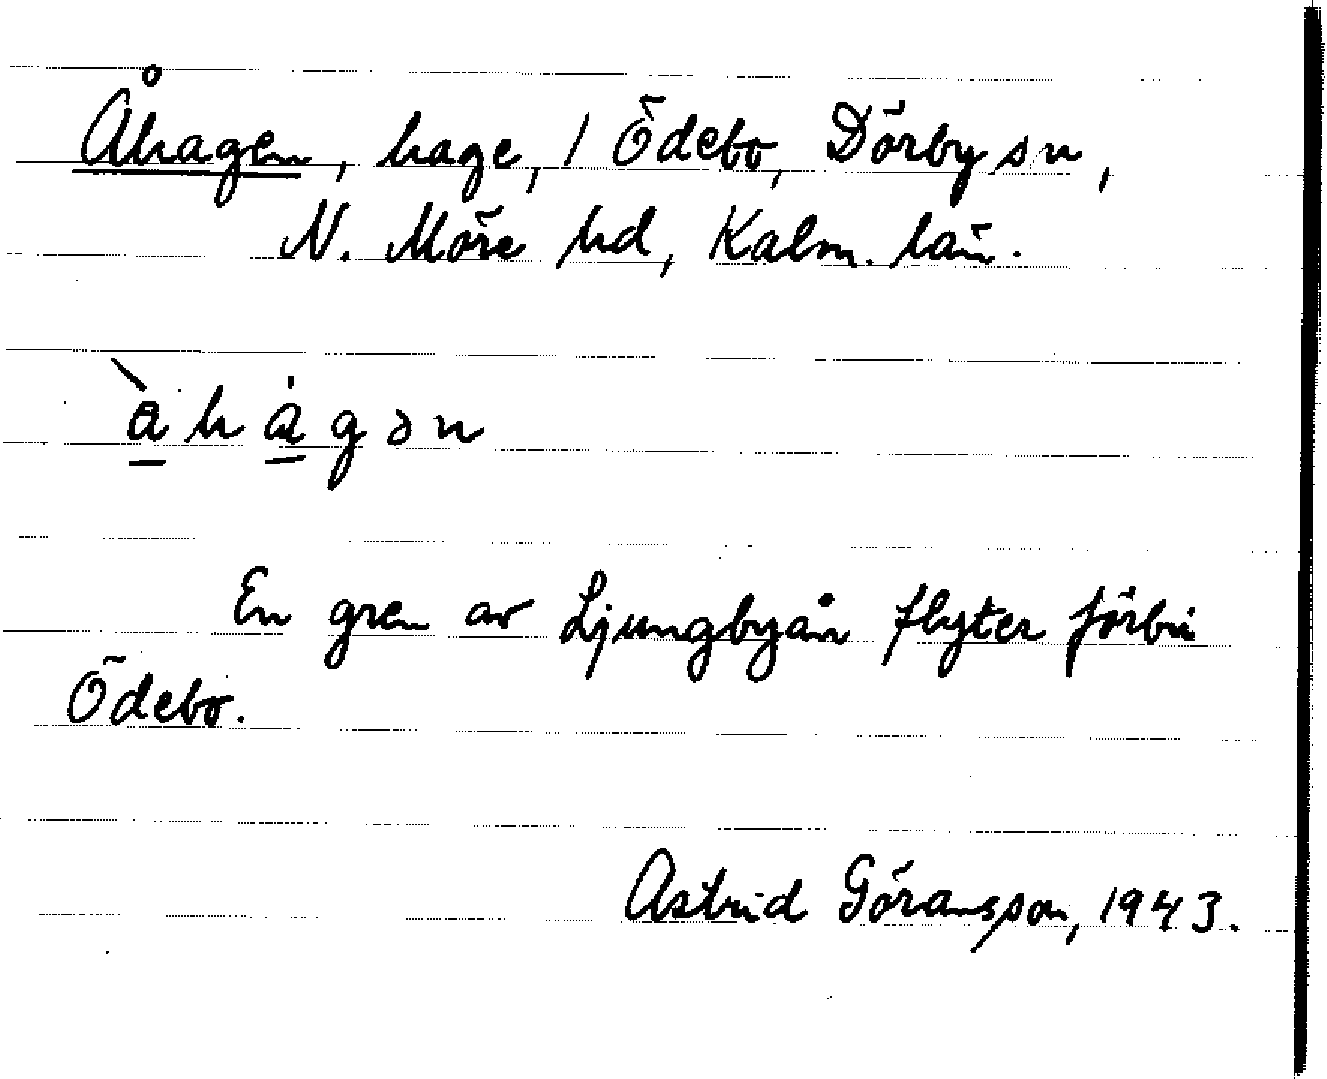 Åhagen, hage, 1 Ödebo, Dörby sn,
N. Möre hd, Kalm. län.
å̀ h a̍ g ə n
En gren av Ljungbyån flyter förbi
Ödebo.
Astrid Göransson, 1943.